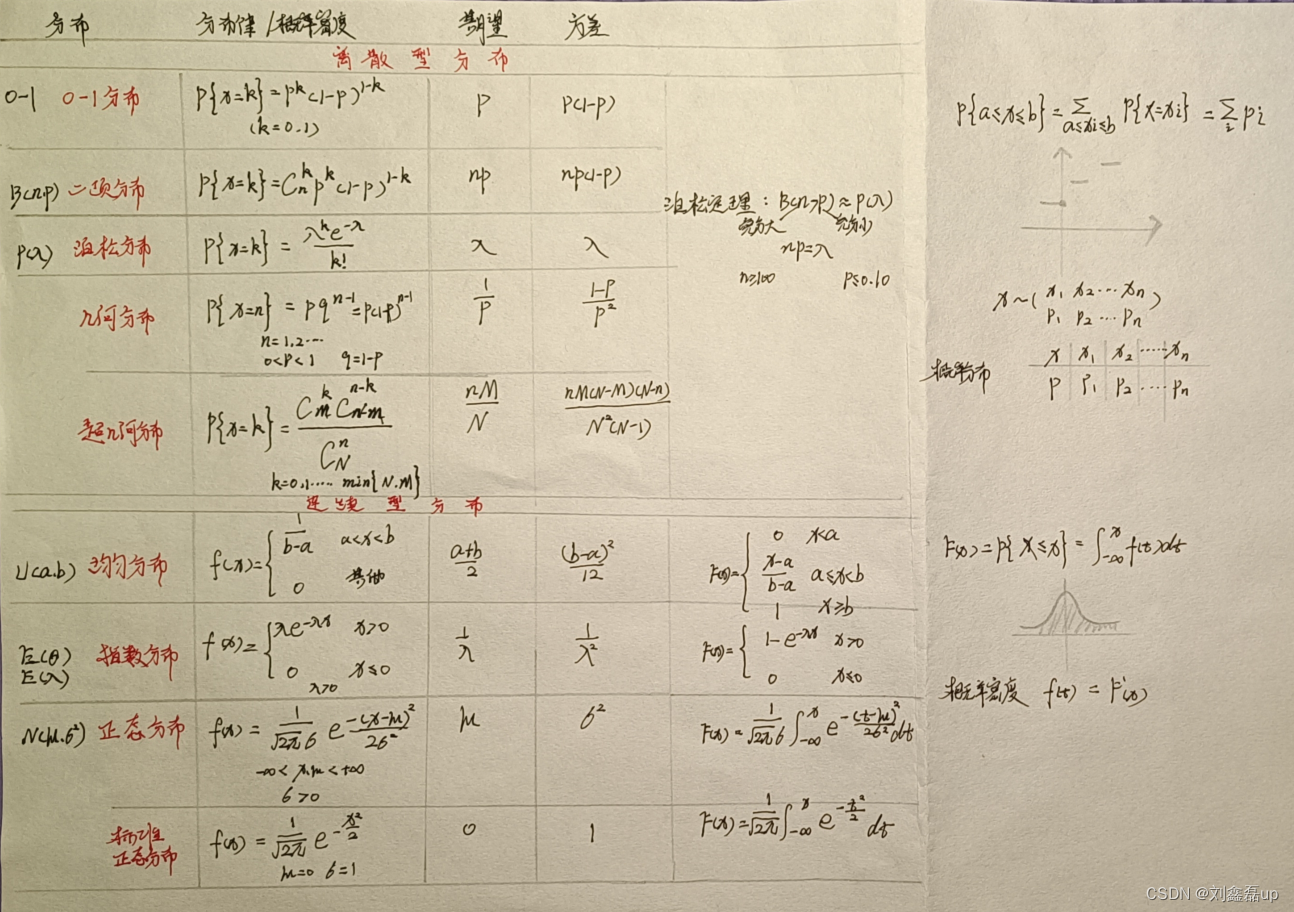 分布 分布律/概率密度 期望 方差
离散型分布
0-1 0-1分布 P{x=k}=p^k(1-p)^{1-k} P P(1-P)
(k=0.1)
B(n.p) 二项分布 P{x=k}=C_n^k p^k(1-p)^{1-k} np np(1-p)
泊松定理：B(n,p)≈P(λ)
充分大 充分小
np=λ
n≥100 P≤0.10
P(λ) 泊松分布 P{x=k}=λ^k e^{-λ}/k! λ λ
几何分布 P{x=n}=pq^{n-1}=p(1-p)^{n-1} 1/P (1-P)/P^2
n=1.2…
0<P<1 q=1-p
超几何分布 P{x=k}=C_M^k C_{N-M}^{n-k}/C_N^n nM/N nM(N-M)(N-n)/N^2(N-1)
k=0,1…… min{N.M}
连续型分布
U(a.b) 均匀分布 f(x)={1/(b-a) a<x<b (a+b)/2 (b-a)^2/12 F(x)={0 x<a
0 其他 (x-a)/(b-a) a≤x<b
1 x≥b
E(θ) 指数分布 f(x)={λe^{-λx} x>0 1/λ 1/λ^2 F(x)={1-e^{-λx} x>0
E(λ) 0 x≤0 0 x≤0
λ>0
N(μ.σ^2) 正态分布 f(x)=1/(√2π σ) e^{-(x-μ)^2/2σ^2} μ σ^2 F(x)=1/(√2π σ)∫_{-∞}^x e^{-(t-μ)^2/2σ^2}dt
-∞<x.μ<+∞
σ>0
标准 f(x)=1/√2π e^{-x^2/2} 0 1 F(x)=1/√2π ∫_{-∞}^x e^{-t^2/2}dt
正态分布 μ=0 σ=1
P{a≤x≤b}=∑_{a≤xi≤b} P{X=xi}=∑_i Pi
x~(x_1 x_2…x_n
P_1 P_2…P_n)
概率分布 x x_1 x_2……x_n
P P_1 P_2……P_n
F(x)=P{X≤x}=∫_{-∞}^x f(t)dt
概率密度 f(t)=F'(x)
CSDN @刘鑫磊up